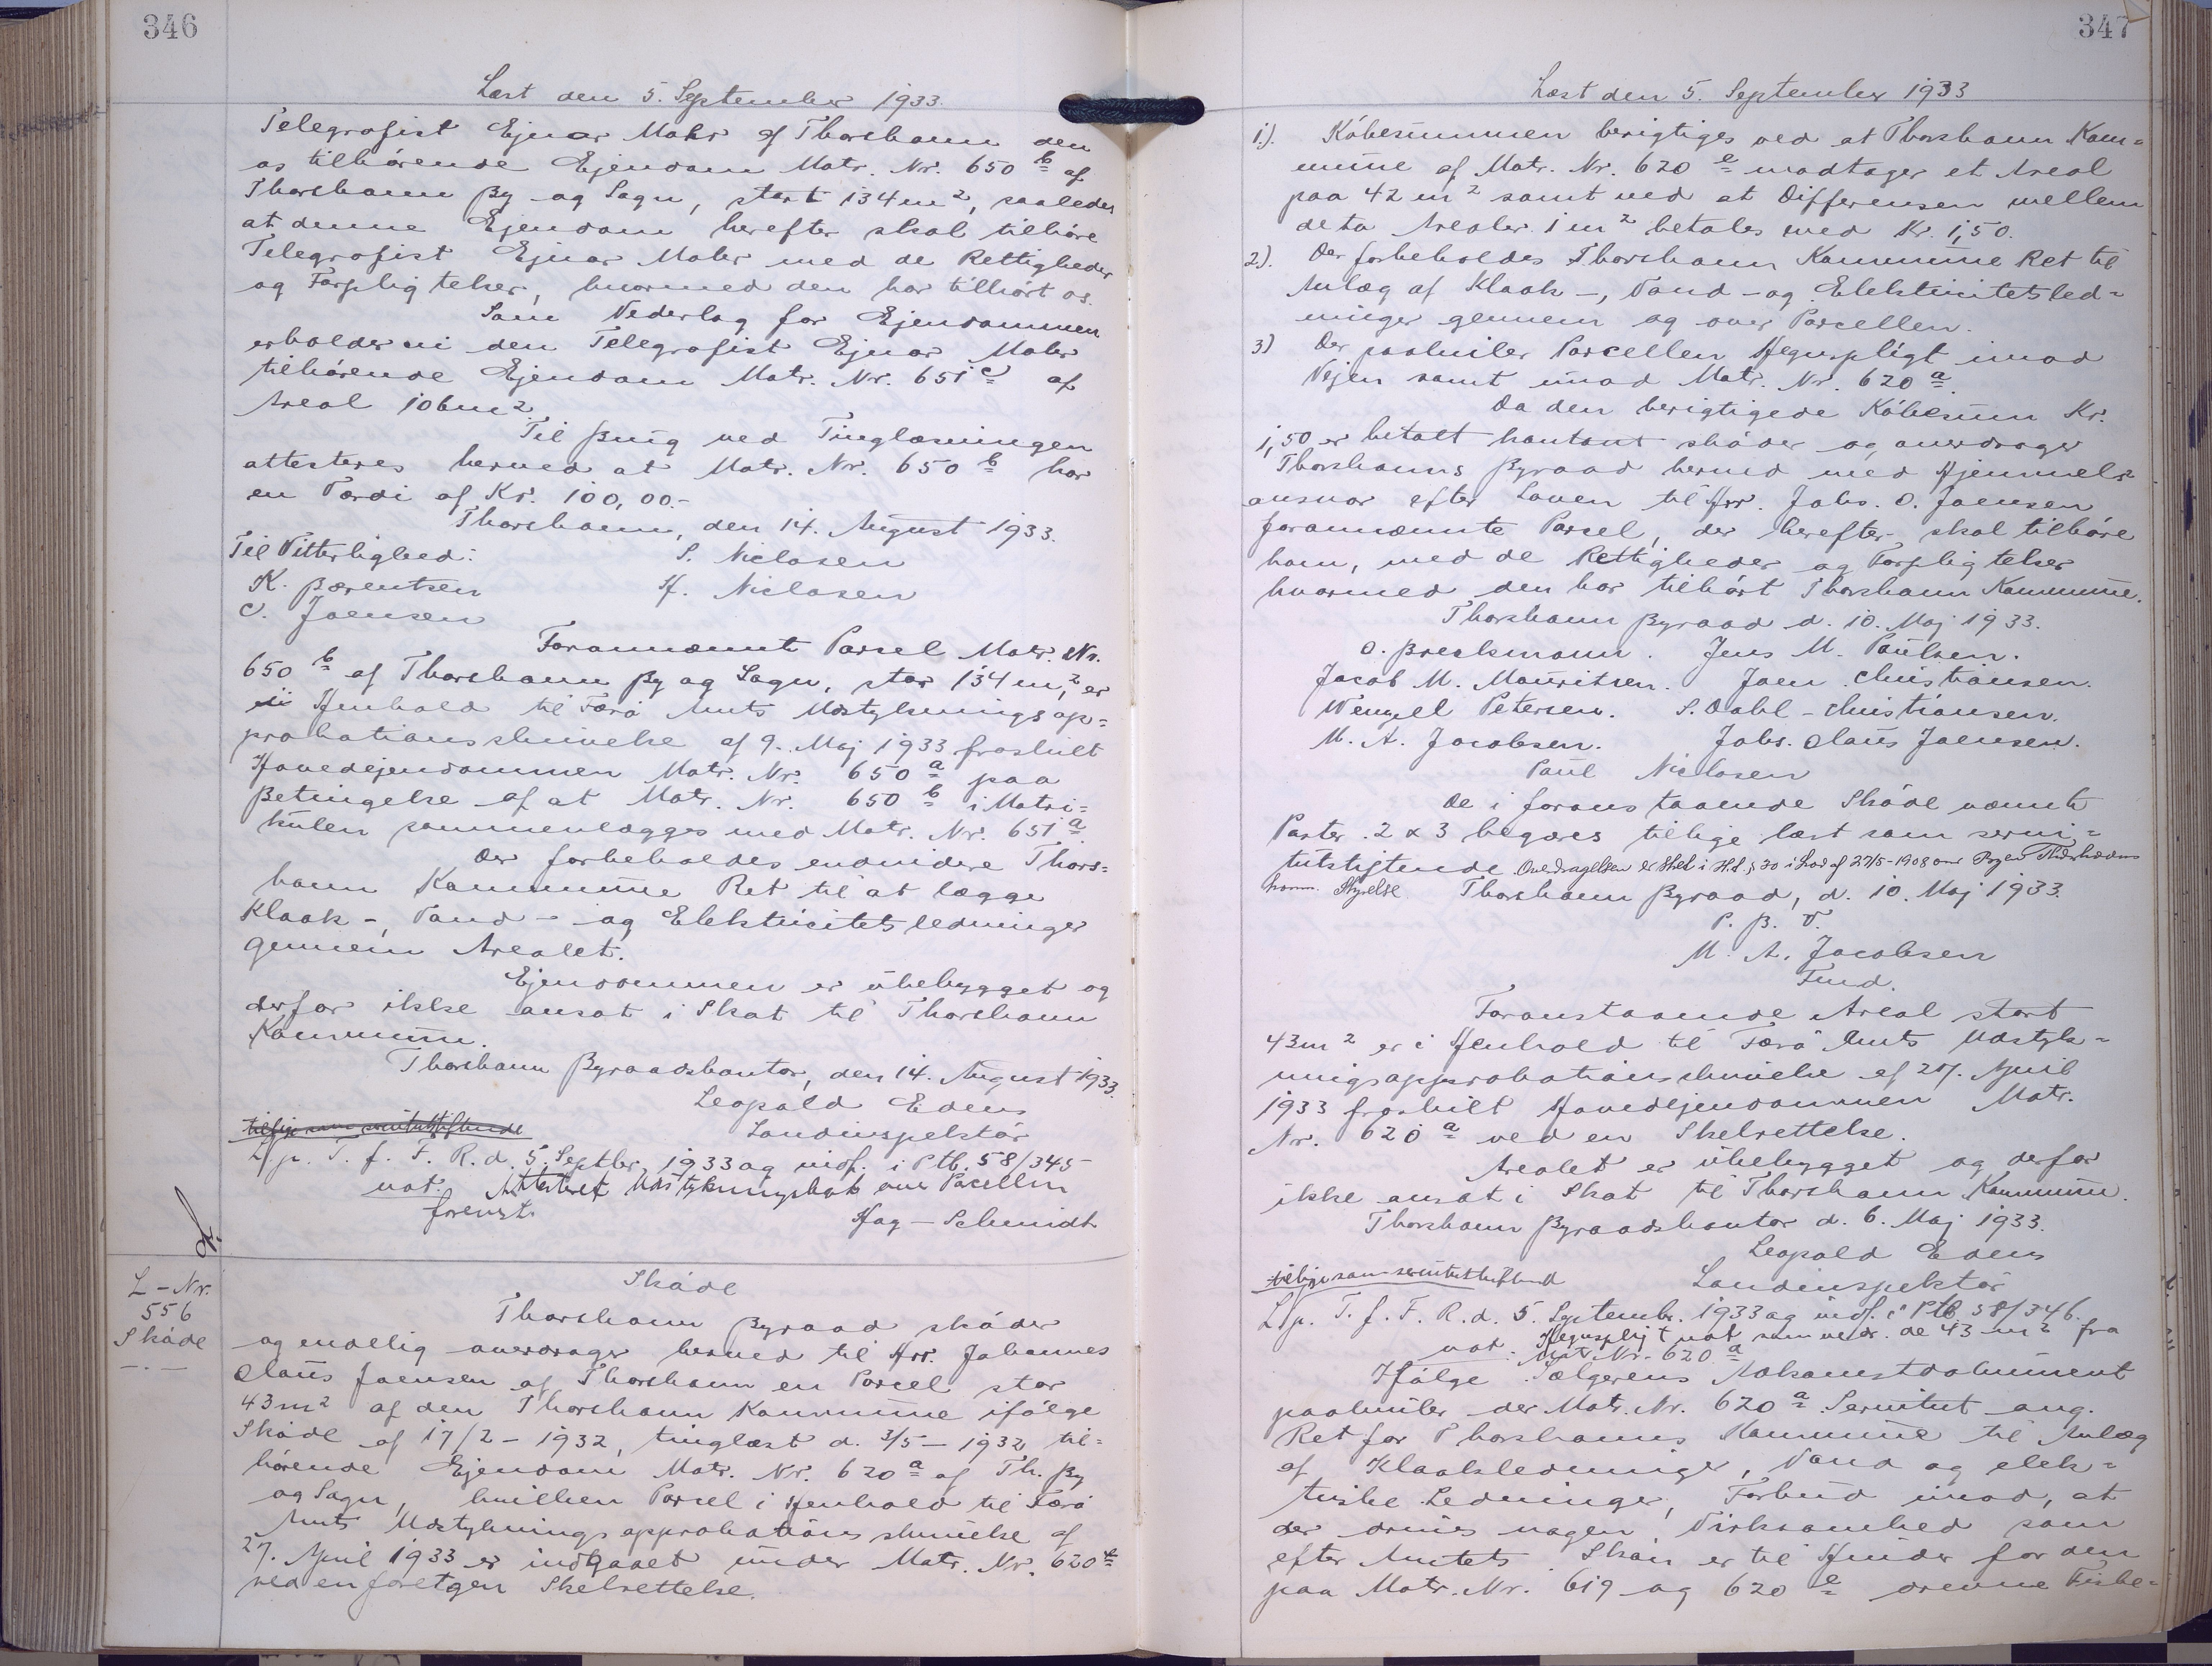 346
Læst den 5. September 1933.
Telegrafist Ejnar Mohr af Thorshavn den
os tilhörende Ejendom Matr. Nr. 650 b af
Thorshavn By og Sogn, stort 134 m², saaledes
at denne Ejendom herefter skal tilhöre
Telegrafist Ejnar Mohr med de Rettigheder
og Forpligtelser, hvormed den har tilhört os.
Som Vederlag for Ejendommen
erholder vi den Telegrafist Ejnar Mohr
tilhörende Ejendom Matr. Nr. 651 c af
Areal 106 m²
Til Brug ved Tinglæsningen
attesteres herved at Matr. Nr. 650 b har
en Værdi af Kr. 100,00.-
Thorshavn, den 14. August 1933.
Til Vitterlighed: S. Niclasen
K. Bærentsen H. Niclasen
C. Joensen
Forannævnte Parsel Matr. Nr.
650 b af Thorshavn By og Sogn, stor 134 m², er
i Henhold til Færö Amts Udstyknings ap=
probationsskrivelse af 9. Maj 1933 fraskilt
Hovedejendommen Matr. Nr. 650 a paa
Betingelse af at Matr. Nr. 650 b i Matri=
kulen sammenlægges med Matr. Nr. 651 a
Der forbeholdes endvidere Thors=
havn Kommune Ret til at lægge
Kloak-, Vand- og Elektricitetsledninger
gennem Arealet.
Ejendommen er ubebygget og
derfor ikke ansat i Skat til Thorshavn
Kommune.
Thorshavn Byraadskontor, den 14. August 1933.
Leopold Edens
Landinspektör
tillige som servitutstiftende
L. p. T. f. F. R. d. 5. Septbr. 1933 og indf. i Ptb. 58/345
not. Attesteret Udstykningskort over Parcellen
forevist.
Hag-Schmidt
L-Nr.
556
Sköde
Sköde
Thorshavn Byraad sköder
og endelig overdrager herved til Hrr. Johannes
Olaüs Joensen af Thorshavn en Parsel stor
43 m² af den Thorshavn Kommune ifölge
Sköde af 17/2 - 1932, tinglæst d. 3/5 - 1932 til=
hörende Ejendom Matr. Nr. 620 a af Th. By
og Sogn, hvilken Parsel i Henhold til Færö
Amts Udstykningsapprobationsskrivelse af
27. April 1933 er indgaaet under Matr. Nr. 620 e
ved en foretgen Skelrettelse.
347
Læst den 5. September 1933
1). Köbesummen berigtiges ved at Thorshavn Kom=
mune af Matr. Nr. 620 e modtager et Areal
paa 42 m² samt ved at Differensen mellem
de to Arealer 1 m² betales med Kr. 1,50.
2). Der forbeholdes Thorshavn Kommune Ret til
Anlæg af Kloak-, Vand- og Elektricitetsled=
ninger gennem og over Parcellen.
3) Der paahviler Parcellen Hegnspligt imod
Vejen samt imod Matr. Nr. 620 a.
Da den berigtigede Köbesum Kr.
1,50 er betalt kontant sköder og overdrager
Thorshavns Byraad herved med Hjemmels=
ansvar efter Loven til Hrr. Johs. O. Joensen
forannævnte Parsel, der herefter skal tilhöre
ham, med de Rettigheder og Forpligtelser
hvormed den har tilhört Thorshavn Kommune.
Thorshavn Byraad d. 10. Maj 1933.
O. Breckmann. Jens M. Poulsen.
Jacob M. Mouritsen. Joen Christiansen.
Wenzell Petersen. S. Dahl-Christiansen.
M. A. Jacobsen. Johs. Olaüs Joensen.
Poül Niclasen
De i foranstaaende Sköde nævnte
Poster 2 & 3 begæres tillige læst som servi=
tutstiftende Overdragelsen er sket i H.t. § 30 i Lov af 27/5-1908 om Byen Thorshavns
komm. Styrelse Thorshavn Byraad, d. 10. Maj 1933.
P. B. V.
M. A. Jacobsen
Fmd.
Foranstaaende Areal stort
43 m² er i Henhold til Færö Amts Udstyk=
ningsapprobationsskrivelse af 27. April
1933 fraskilt Hovedejendommen Matr.
Nr. 620 a ved en Skelrettelse.
Arealet er ubebygget og derfor
ikke ansat i Skat til Thorshavn Kommune.
Thorshavn Byraadskontor d. 6. Maj 1933.
Leopold Edens
tillige som servitutstiftend Landinspektör
L. p. T. f. F. R. d. 5. Septembr. 1933 og indf. i Ptb. 58/346.
not. Hegnspligt not. som vedr. de 43 m² fra
Mtr. Nr. 620 a
Ifölge Sælgerens Adkomstdokument
paahviler der Matr. Nr. 620 a Servitut ang.
Ret for Thorshavns Kommune til Anlæg
af Kloakledninger, Vand og elek=
triske Ledninger, Forbud imod, at
der drives nogen Virksomhed som
efter Amtets Skön er til Hinder for den
paa Matr. Nr. 619 og 620 e drevne Fiske=